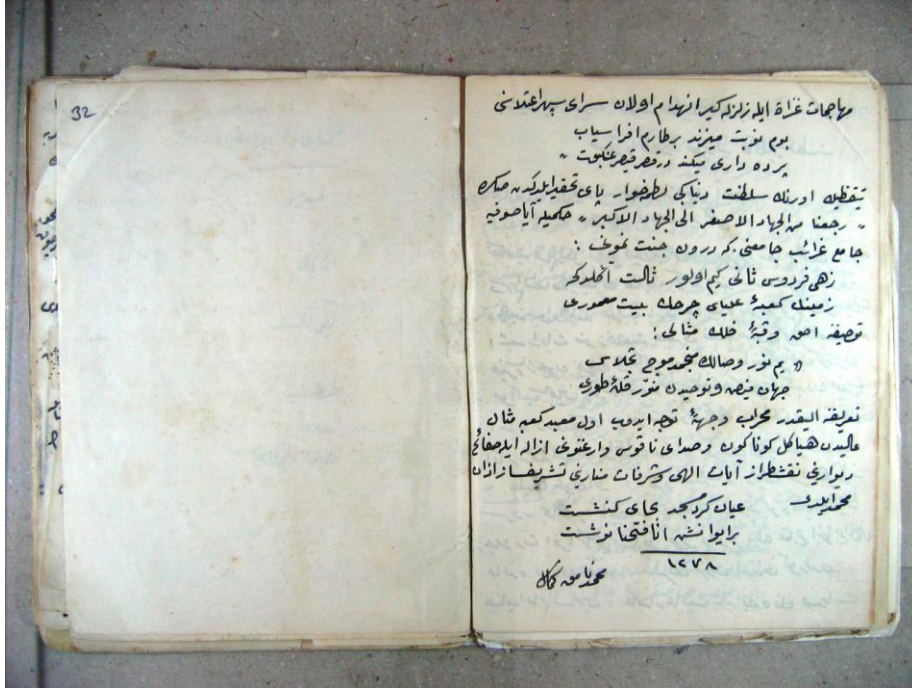 32
مهاجمات غزاة ايله زلزله كير انهدام اولان سراى سپهر اعتلاسنى
بوم نوبت ميزند بر طارم افراسياب
پرده دارى ميكند در قصر قيصر عنكبوت »
سلطنت دنياى پاى تحقير ايلدكدن صكره
« رجعنا من الجهاد الاصغر الى الجهاد الاكبر » حكميله آياصوفيه
جامع غرائب جامعنى كه درون جنت نمونى :
زهى فردوس ثانى كيم اولور ثالث آكلدكه
زمينك كعبۀ علياى چرخك بيت معمورى
توصيفه احق وقبۀ فلك مثالى :
« يم نور وصالك منجمد موج تجلاسى
جهان فيض وتوحيدك منور قلۀ طورى
تعريفه اليقدر محراب وجهۀ توجه ايدوب اول معبد كعبه مثال
عاليدن هياكل كوناكون وصداى ناقوس وارغنونى ازاله ايله صفائح
ديوارينى نقشطراز آيات الهى وشرفات منارنى تشريفساز اذان
محمد ايلدى
عيان كرد مسجد بجاى كنشت
بر ايوانش انا فتحنا نوشت
١٢٧٨
محمد نامق كمال